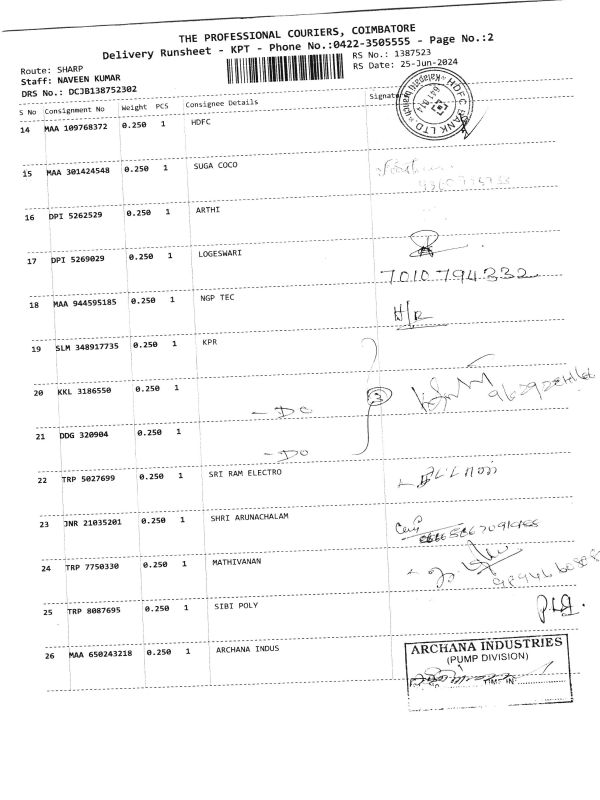 THE PROFESSIONAL COURIERS, COIMBATORE
Delivery Runsheet - KPT - Phone No.:0422-3505555 - Page No.:2
Route: SHARP
Staff: NAVEEN KUMAR
DRS No.: DCJB138752302
RS No.: 1387523
RS Date: 25-Jun-2024
S No Consignment No Weight PCS Consignee Details Signature
14 MAA 109768372 0.250 1 HDFC
HDFC BANK LTD.
15 MAA 301424548 0.250 1 SUGA COCO
16 DPI 5262529 0.250 1 ARTHI
17 DPI 5269029 0.250 1 LOGESWARI
7010794332
18 MAA 944595185 0.250 1 NGP TEC
H/R
19 SLM 348917735 0.250 1 KPR
20 KKL 3186550 0.250 1
- DO 3
21 DDG 320904 0.250 1
- DO
22 TRP 5027699 0.250 1 SRI RAM ELECTRO
23 JNR 21035201 0.250 1 SHRI ARUNACHALAM
24 TRP 7750330 0.250 1 MATHIVANAN
25 TRP 8087695 0.250 1 SIBI POLY
26 MAA 650243218 0.250 1 ARCHANA INDUS
ARCHANA INDUSTRIES
(PUMP DIVISION)
TIME IN